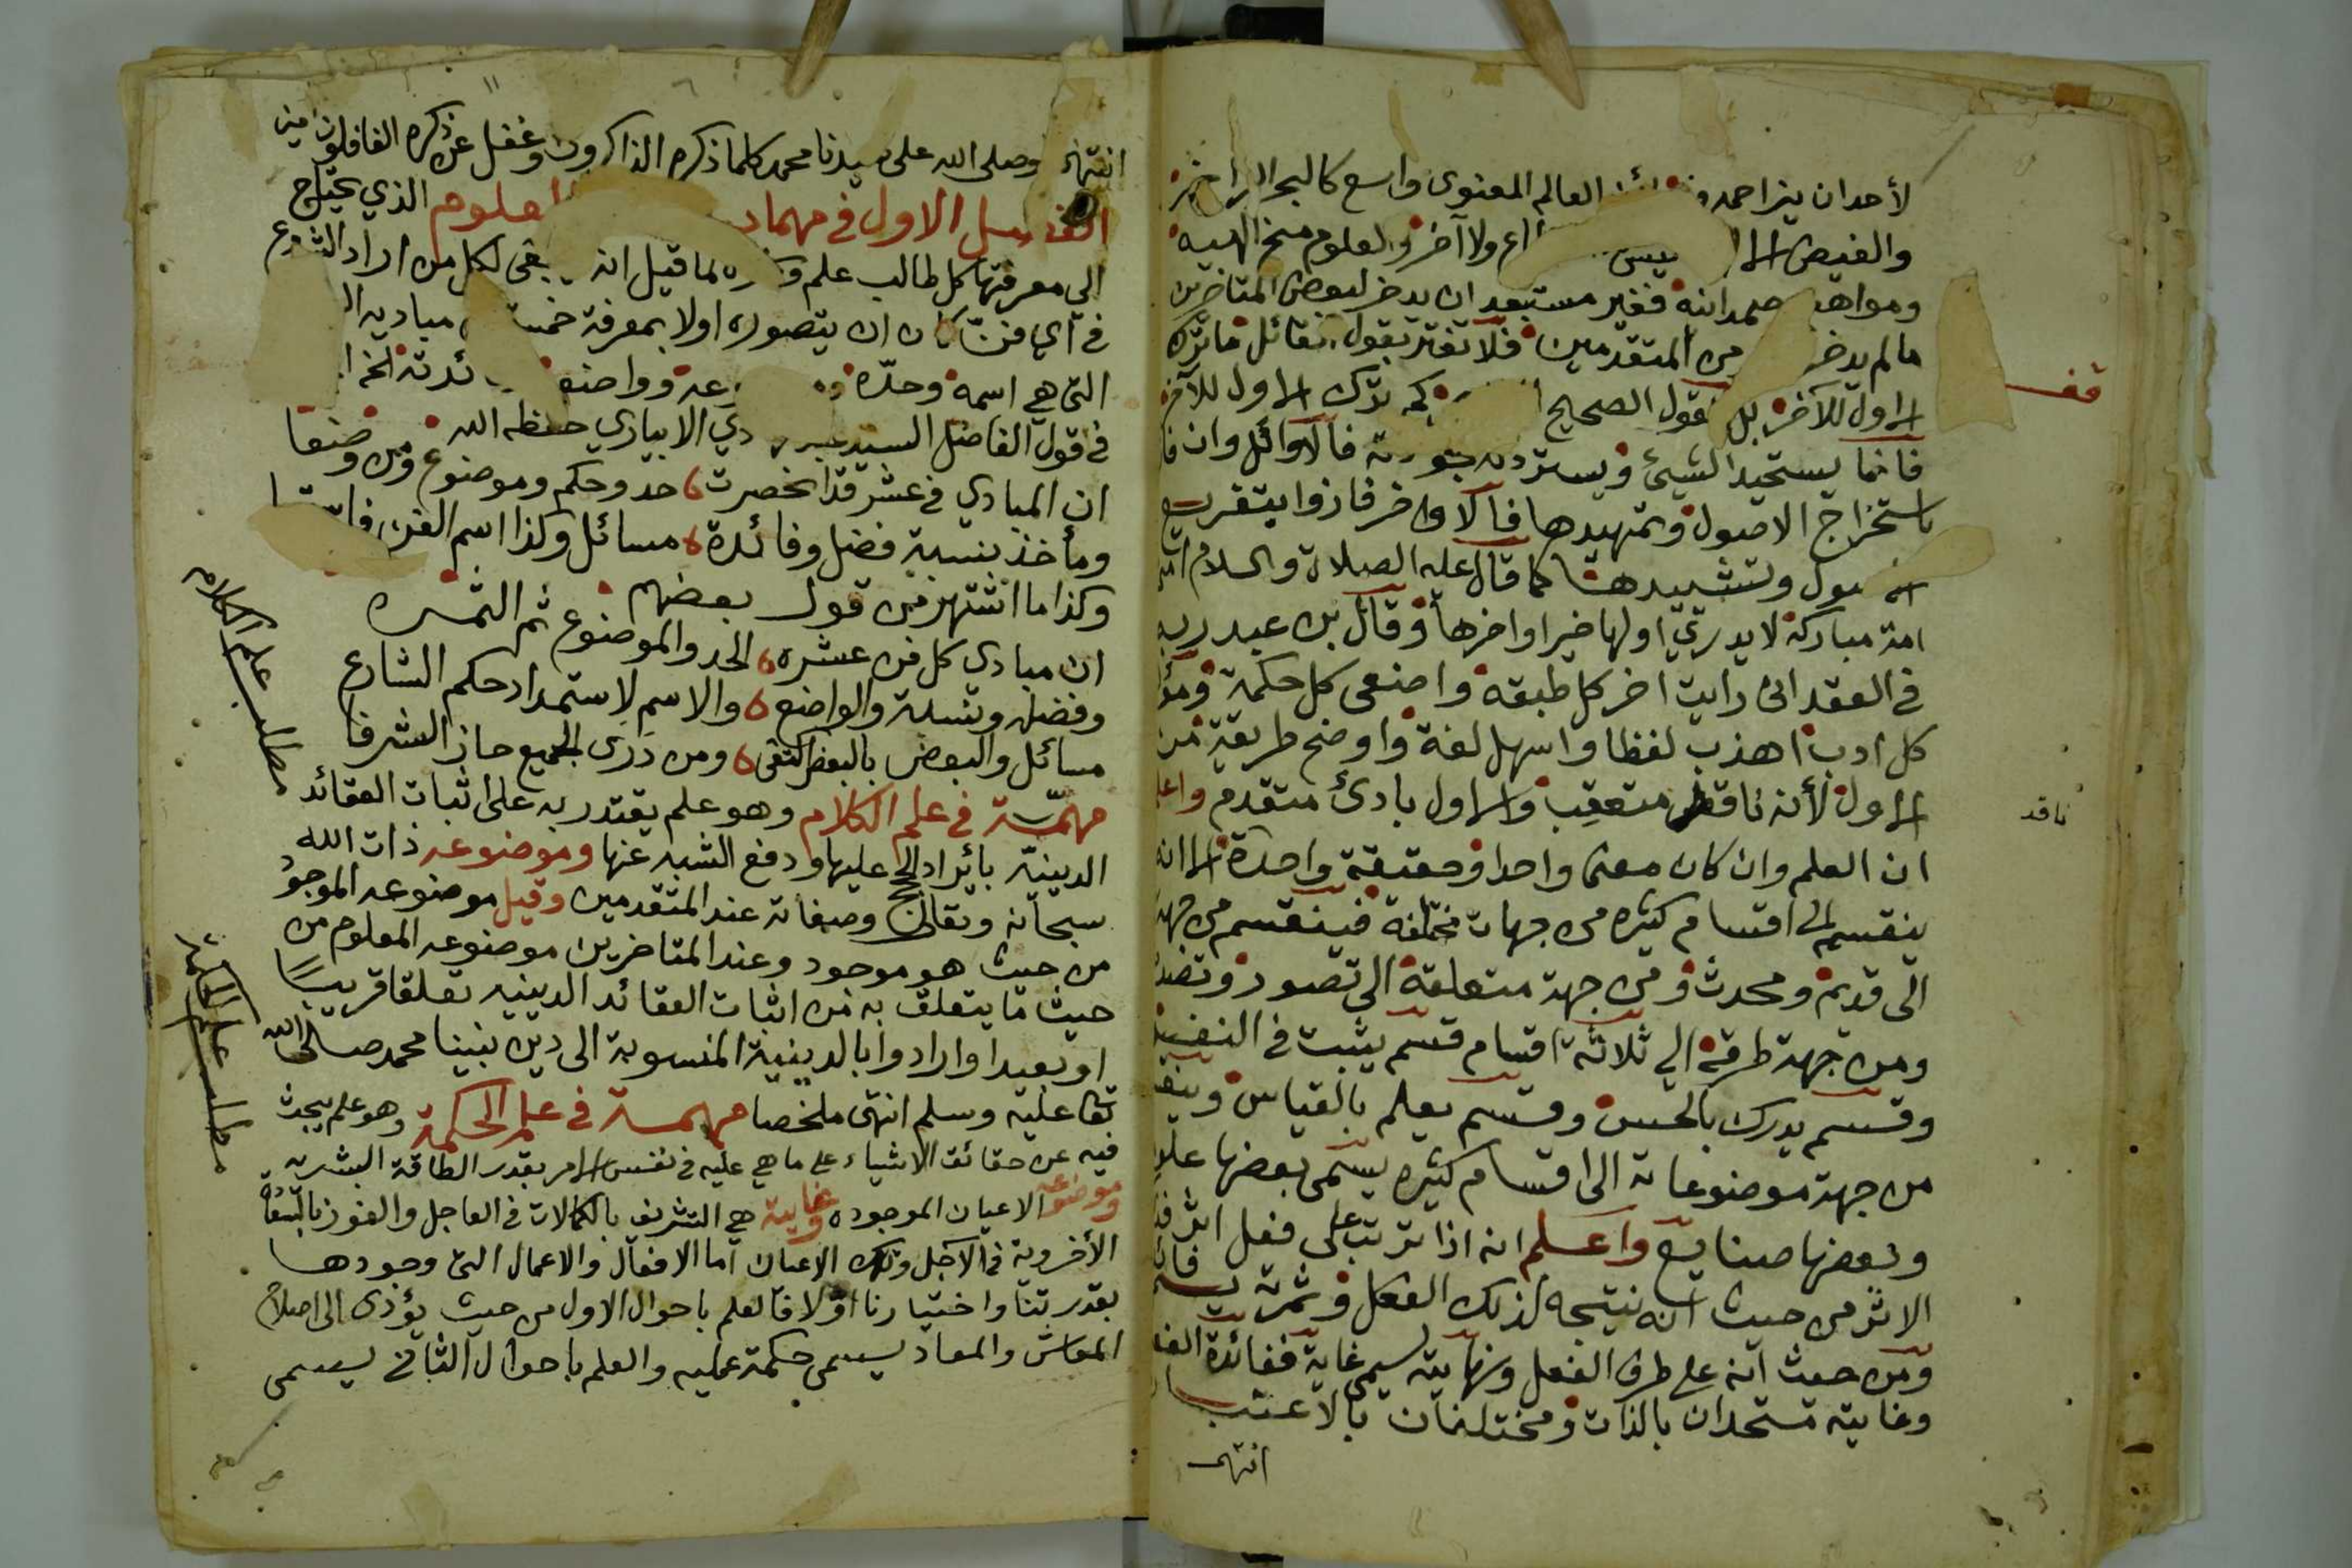 لأحد ان يزاحمه العالم المعنوى واسع كالبحر الزاخر
والفيض ليس ولا آخر والعلوم منح الهيه
ومواهب صمدانية فغير مستبعد ان يدخر لبعض المتاخرين
مالم يدخر من المتقدمين فلا تغتر بقول القائل ما ترك
الاول للآخر بل القول الصحيح كم ترك الاول للآخر
فانما يستجيد الشيئ ويسترد فالاوائل وان فا
باستخراج الاصول وتمهيدها فالاواخر فازوا بتفريع
الاصول وتشييدها كما قال عليه الصلاة والسلام
امة مباركة لا يدري اولها خير او اخرها وقال بن عبد ربه
في العقد انى رايت اخر كل طبقه واضعى كل حكمة ومؤ
كل ادب اهذب لفظا واسهل لغة واوضح طريقة من
الاول لأنه ناقض متعقب والاول بادئ متقدم واعلم
ناقد
ان العلم وان كان معنى واحدا وحقيقة واحدة الا انه
ينقسم الى اقسام كثيره من جهات مختلفة فينقسم من جهة
الى قديم ومحدث ومن جهة متعلقة الى تصور وتصد
ومن جهة طرقه الي ثلاثة اقسام قسم يثبت في النفس
وقسم يدرك بالحس وقسم يعلم بالقياس وينقسم
من جهة موضوعاته الى اقسام كثيره يسمى بعضها علو
وبعضها صنايع واعلم انه اذا ترتب على فعل اثر فذ
الاثر من حيث انه نتيجه لذلك الفعل وثمرته يسمى فائد
ومن حيث انه على طرف الفعل ونهايته يسمى غاية ففائدة الفعل
وغايته متحدان بالذات ومختلفان بالاعتبار
انتهى
انتهاء وصلى الله على سيدنا محمد كلما ذكره الذاكرون وغفل عن ذكره الغافلون امين
الفصل الاول في مهمات العلوم الذي يحتاج
الي معرفتها كل طالب علم لما قيل انه ينبغى لكل من اراد الشروع
في اي فن كان ان يتصوره اولا بمعرفة خمسة مباديه
التى هي اسمه وحده وموضوعه وواضعه
في قول الفاضل السيد الابياري حفظه الله
ان المبادي في عشر قد انحصرت حد وحكم وموضوع ومن وضعا
ومأخذ بنسبة فضل وفائدة مسائل وكذا اسم الفن
وكذا ما اشتهر من قول بعضهم
ان مبادى كل فن عشره الحد والموضوع ثم الثمره
وفضله ونسبة والواضع والاسم لاستمداد حكم الشارع
مسائل والبعض بالبعض اكتفى ومن درى الجميع حاز الشرفا
مهمة في علم الكلام وهو علم يقتدر به على اثبات العقائد
الدينيه بأيراد الحجج عليها ودفع الشبه عنها وموضوعه ذات الله
سبحانه وتعالى وصفاته عند المتقدمين وقيل موضوعه الموجود
من حيث هو موجود وعند المتاخرين موضوعه المعلوم من
حيث ما يتعلق به من اثبات العقائد الدينيه تعلقا قريبا
او بعيدا وارادوا بالدينية المنسوبة الى دين نبينا محمد صلى الله
تعا عليه وسلم انتهى ملخصا مهمة في علم الحكمة وهو علم يبحث
فيه عن حقائق الاشياء على ما هي عليه في نفس الامر بقدر الطاقة البشريه
وموضوعه الاعيان الموجوده وغايته هي التشريف بالكمالات في العاجل والفوز بالسعادة
الأخروية في الآجل وتلك الاعيان اما الافعال والاعمال التى وجودها
بقدرتنا واختيارنا اولا فالعلم باحوال الاول من حيث يؤدى الى اصلاح
المعاش والمعاد يسمى حكمة عمليه والعلم باحوال الثاني يسمى
مطلب علم الكلام
مطلب علم الحكمة